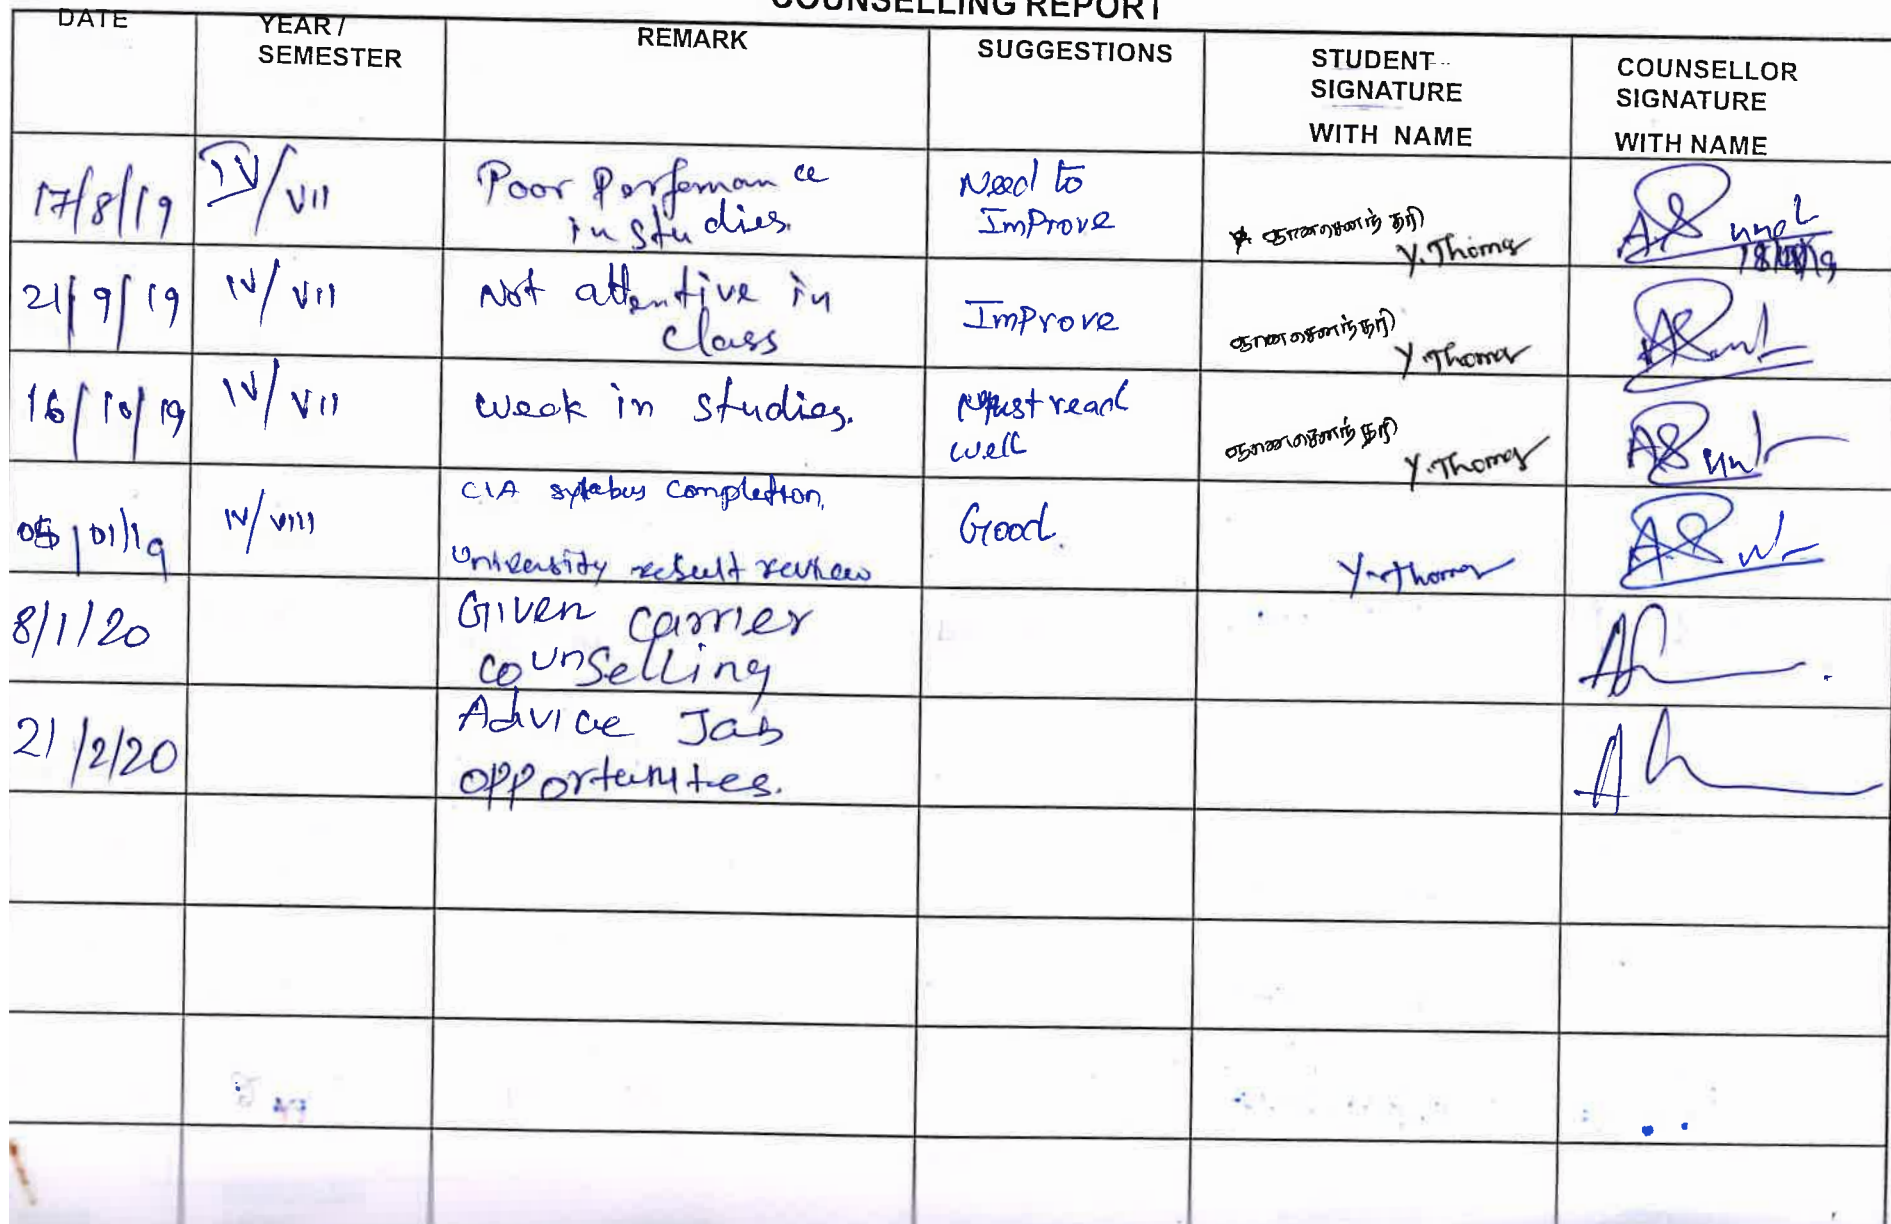 COUNSELLING REPORT
DATE
YEAR /
SEMESTER
REMARK
SUGGESTIONS
STUDENT
SIGNATURE
WITH NAME
COUNSELLOR
SIGNATURE
WITH NAME
17/8/19
IV/VII
Poor Perfemance
in studies.
Need to
ImProve
Y. Thomas
21/9/19
IV/VII
Not attentive in
class
ImProve
Y. Thomas
16/10/19
IV/VII
weak in studies.
Must read
well
Y. Thomas
05/01/19
IV/VIII
CIA sylabus completion,
University result review
Good.
Y. Thomas
8/1/20
Given carrier
counselling
21/2/20
Advice Job
opportunities.